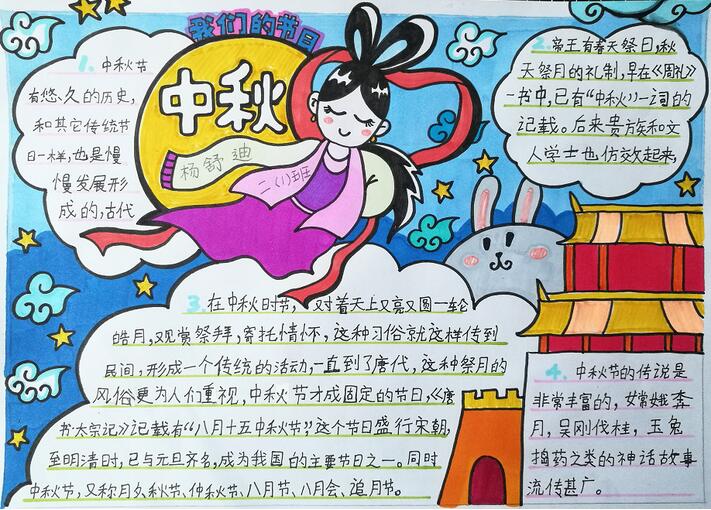 我们的节日
中秋
杨舒迪
二(1)班
1. 中秋节
有悠久的历史,
和其它传统节
日一样,也是慢
慢发展形
成的,古代
2. 帝王有春天祭日,秋
天祭月的礼制,早在《周礼》
一书中,已有“中秋”一词的
记载。后来贵族和文
人学士也仿效起来,
3. 在中秋时节,对着天上又亮又圆一轮
皓月,观赏祭拜,寄托情怀,这种习俗就这样传到
民间,形成一个传统的活动,一直到了唐代,这种祭月的
风俗更为人们重视,中秋节才成固定的节日,《唐
书·太宗记》记载有“八月十五中秋节”,这个节日盛行宋朝,
至明清时,已与元旦齐名,成为我国的主要节日之一。同时
中秋节,又称月夕、秋节、仲秋节、八月节、八月会、追月节。
4. 中秋节的传说是
非常丰富的,嫦娥奔
月,吴刚伐桂,玉兔
捣药之类的神话故事
流传甚广。